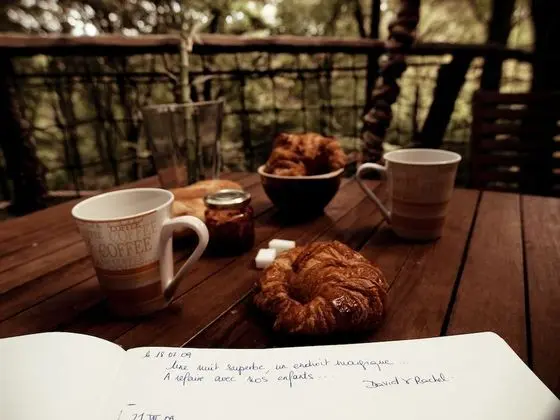 COFFEE
COFFEE
COFFEE
le 18.07.09
Une nuit superbe, un endroit magique ...
A refaire avec nos enfants ...
David & Rachel.